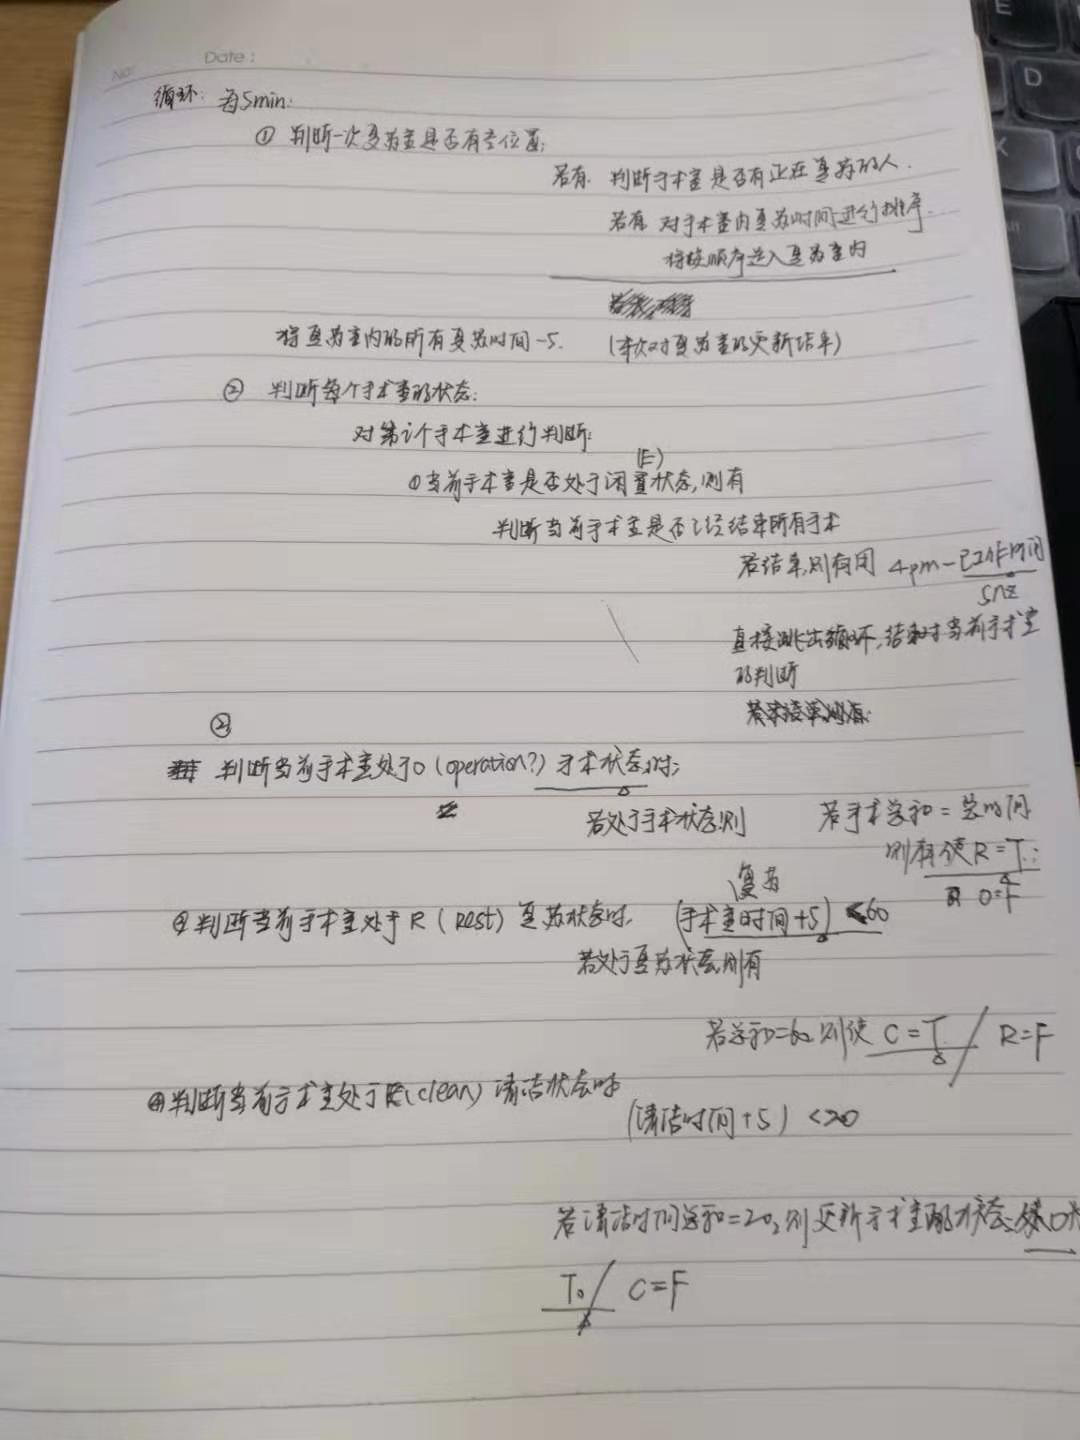 No:
Date:
循环: 每5min:
① 判断一次复苏室是否有空位置;
若有. 判断手术室是否有正在复苏的人.
若有 对手术室内复苏时间进行排序.
将按顺序送入复苏室内
将复苏室内的所有复苏时间-5. (本次对复苏室的更新结束)
② 判断每个手术室的状态:
对第i个手术室进行判断:
(F)
①当前手术室是否处于闲置状态,则有
判断当前手术室是否已经结束所有手术
若结束,则有用 4pm-已工作时间
直接跳出循环,结束对当前手术室
的判断
②
判断当前手术室处于O (operation?) 手术状态时;
若处于手术状态则 若手术总和=总时间
则有使R=T;
O=F
复苏
④判断当前手术室处于R (Rest) 复苏状态时. (手术室时间+5) <60
若处于复苏状态则有
若总和=60 则使 C=T / R=F
④判断当前手术室处于(clean) 清洁状态时
(清洁时间+5) <20
若清洁时间总和=20,则更新手术室的状态
T / C=F